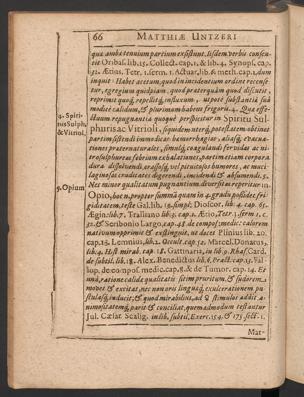 66 MATTHIÆ UNTZERI
quæ ambæ tenuium partium existunt, iisdem verbis consentiunt
te Oribas. lib. 15. Collect. cap. 1. & lib. 4. Synops. cap.
52. Ætius, Tetr. 1. serm. 1. Actuar. lib. 6 meth. cap. 1. dum
inquit: Habet acetum, quod in incidentium ordine recensetur,
egregium quidpiam, quod præterquàm quod discutit,
reprimit quoq; repellitq; influxum,
modicè calidum, & plurimùm habens frigoris. 4.
4. Spiritus
Sulph.
& Vitriol.
repugnantiæ quoque perspicitur in Spiritu Sulphuris
ac Vitrioli, siquidem uterq; potestatem obtinet
partim sistendi immodicas hæmorrhagias, aliasq; evacuationes
præternaturales, simulq; coagulandi fervidas ac nitrosulphureas
febrium exhalationes, partim etiam corpora
dura dissolvendi, crassosq; vel pituitosos humores, ac mucilaginosas
cruditates digerendi, incidendi & absumendi. 5.
5. Opium.
Nec minor qualitatum pugnantium diversitas reperitur in
Opio, hoc n. propter summā quam in 4. gradu possidet, frigiditatem,
teste Gal. lib. 18. simpl; Dioscor. lib. 4. cap. 65.
Ægin. lib. 7. Tralliano lib. 5. cap. 1. Ætio, Tetr. 1. serm. 1. c.
31. & Scribonio Largo, cap. 48. de compos; medic: calorem
nativum opprimit & extinguit, ut docet Plinius lib. 20.
cap. 18. Lemnius, lib. 2. Occult. cap. 32. Marcel. Donatus,
lib. 4. Hist. mirab. cap. 18. Gattinaria, in lib. 9. Rhasis. Card.
de subtil. lib. 18. Alex. Benedictus lib. 1. cap. 13.
lop. de compos. medic. cap. 8. & de Tumor. cap. 14. Et
unà, ratione calidæ qualitatis sitim pruritum, & sudorem
movet & excitat, nec non oris linguæq; exulcerationem pustulasq;
inducit; & quod mirabilius, ad ♀ stimulos addit animositatemq;
parit & conciliat, quemadmodum testantur
Jul. Cæsar Scalig. in lib. subtil. Exerc. 154. & 175. sect. 1.
Mat-